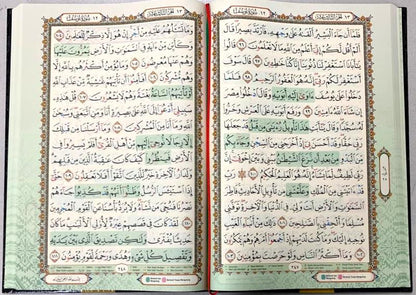 فَلَمَّآ أَن جَآءَ ٱلْبَشِيرُ أَلْقَىٰهُ عَلَىٰ وَجْهِهِۦ فَٱرْتَدَّ بَصِيرًا قَالَ
أَلَمْ أَقُل لَّكُمْ إِنِّىٓ أَعْلَمُ مِنَ ٱللَّهِ مَا لَا تَعْلَمُونَ ٩٦
قَالُوا۟ يَـٰٓأَبَانَا ٱسْتَغْفِرْ لَنَا ذُنُوبَنَآ إِنَّا كُنَّا خَـٰطِـِٔينَ ٩٧ قَالَ سَوْفَ
أَسْتَغْفِرُ لَكُمْ رَبِّىٓ إِنَّهُۥ هُوَ ٱلْغَفُورُ ٱلرَّحِيمُ ٩٨ فَلَمَّا
دَخَلُوا۟ عَلَىٰ يُوسُفَ ءَاوَىٰٓ إِلَيْهِ أَبَوَيْهِ وَقَالَ ٱدْخُلُوا۟ مِصْرَ
إِن شَآءَ ٱللَّهُ ءَامِنِينَ ٩٩ وَرَفَعَ أَبَوَيْهِ عَلَى ٱلْعَرْشِ وَخَرُّوا۟
لَهُۥ سُجَّدًا وَقَالَ يَـٰٓأَبَتِ هَـٰذَا تَأْوِيلُ رُءْيَـٰىَ مِن قَبْلُ قَدْ جَعَلَهَا
رَبِّى حَقًّا وَقَدْ أَحْسَنَ بِىٓ إِذْ أَخْرَجَنِى مِنَ ٱلسِّجْنِ وَجَآءَ بِكُم
مِّنَ ٱلْبَدْوِ مِنۢ بَعْدِ أَن نَّزَغَ ٱلشَّيْطَـٰنُ بَيْنِى وَبَيْنَ إِخْوَتِىٓ
إِنَّ رَبِّى لَطِيفٌ لِّمَا يَشَآءُ إِنَّهُۥ هُوَ ٱلْعَلِيمُ ٱلْحَكِيمُ ١٠٠ رَبِّ
قَدْ ءَاتَيْتَنِى مِنَ ٱلْمُلْكِ وَعَلَّمْتَنِى مِن تَأْوِيلِ ٱلْأَحَادِيثِ
فَاطِرَ ٱلسَّمَـٰوَٰتِ وَٱلْأَرْضِ أَنتَ وَلِىِّۦ فِى ٱلدُّنْيَا وَٱلْـَٔاخِرَةِ
تَوَفَّنِى مُسْلِمًا وَأَلْحِقْنِى بِٱلصَّـٰلِحِينَ ١٠١ ذَٰلِكَ مِنْ أَنۢبَآءِ ٱلْغَيْبِ
نُوحِيهِ إِلَيْكَ وَمَا كُنتَ لَدَيْهِمْ إِذْ أَجْمَعُوٓا۟ أَمْرَهُمْ وَهُمْ يَمْكُرُونَ
١٠٢ وَمَآ أَكْثَرُ ٱلنَّاسِ وَلَوْ حَرَصْتَ بِمُؤْمِنِينَ ١٠٣
٢٤٧
وَمَا تَسْـَٔلُهُمْ عَلَيْهِ مِنْ أَجْرٍ إِنْ هُوَ إِلَّا ذِكْرٌ لِّلْعَـٰلَمِينَ ١٠٤
وَكَأَيِّن مِّنْ ءَايَةٍ فِى ٱلسَّمَـٰوَٰتِ وَٱلْأَرْضِ يَمُرُّونَ عَلَيْهَا
وَهُمْ عَنْهَا مُعْرِضُونَ ١٠٥ وَمَا يُؤْمِنُ أَكْثَرُهُم بِٱللَّهِ إِلَّا
وَهُم مُّشْرِكُونَ ١٠٦ أَفَأَمِنُوٓا۟ أَن تَأْتِيَهُمْ غَـٰشِيَةٌ مِّنْ عَذَابِ ٱللَّهِ
أَوْ تَأْتِيَهُمُ ٱلسَّاعَةُ بَغْتَةً وَهُمْ لَا يَشْعُرُونَ ١٠٧ قُلْ هَـٰذِهِۦ
سَبِيلِىٓ أَدْعُوٓا۟ إِلَى ٱللَّهِ عَلَىٰ بَصِيرَةٍ أَنَا۠ وَمَنِ ٱتَّبَعَنِى وَسُبْحَـٰنَ
ٱللَّهِ وَمَآ أَنَا۠ مِنَ ٱلْمُشْرِكِينَ ١٠٨ وَمَآ أَرْسَلْنَا مِن قَبْلِكَ
إِلَّا رِجَالًا نُّوحِىٓ إِلَيْهِم مِّنْ أَهْلِ ٱلْقُرَىٰٓ أَفَلَمْ يَسِيرُوا۟ فِى
ٱلْأَرْضِ فَيَنظُرُوا۟ كَيْفَ كَانَ عَـٰقِبَةُ ٱلَّذِينَ مِن قَبْلِهِمْ
وَلَدَارُ ٱلْـَٔاخِرَةِ خَيْرٌ لِّلَّذِينَ ٱتَّقَوْا۟ أَفَلَا تَعْقِلُونَ ١٠٩ حَتَّىٰٓ
إِذَا ٱسْتَيْـَٔسَ ٱلرُّسُلُ وَظَنُّوٓا۟ أَنَّهُمْ قَدْ كُذِبُوا۟ جَآءَهُمْ
نَصْرُنَا فَنُجِّىَ مَن نَّشَآءُ وَلَا يُرَدُّ بَأْسُنَا عَنِ ٱلْقَوْمِ ٱلْمُجْرِمِينَ
١١٠ لَقَدْ كَانَ فِى قَصَصِهِمْ عِبْرَةٌ لِّأُو۟لِى ٱلْأَلْبَـٰبِ مَا كَانَ
حَدِيثًا يُفْتَرَىٰ وَلَـٰكِن تَصْدِيقَ ٱلَّذِى بَيْنَ يَدَيْهِ
وَتَفْصِيلَ كُلِّ شَىْءٍ وَهُدًى وَرَحْمَةً لِّقَوْمٍ يُؤْمِنُونَ ١١١
٢٤٨